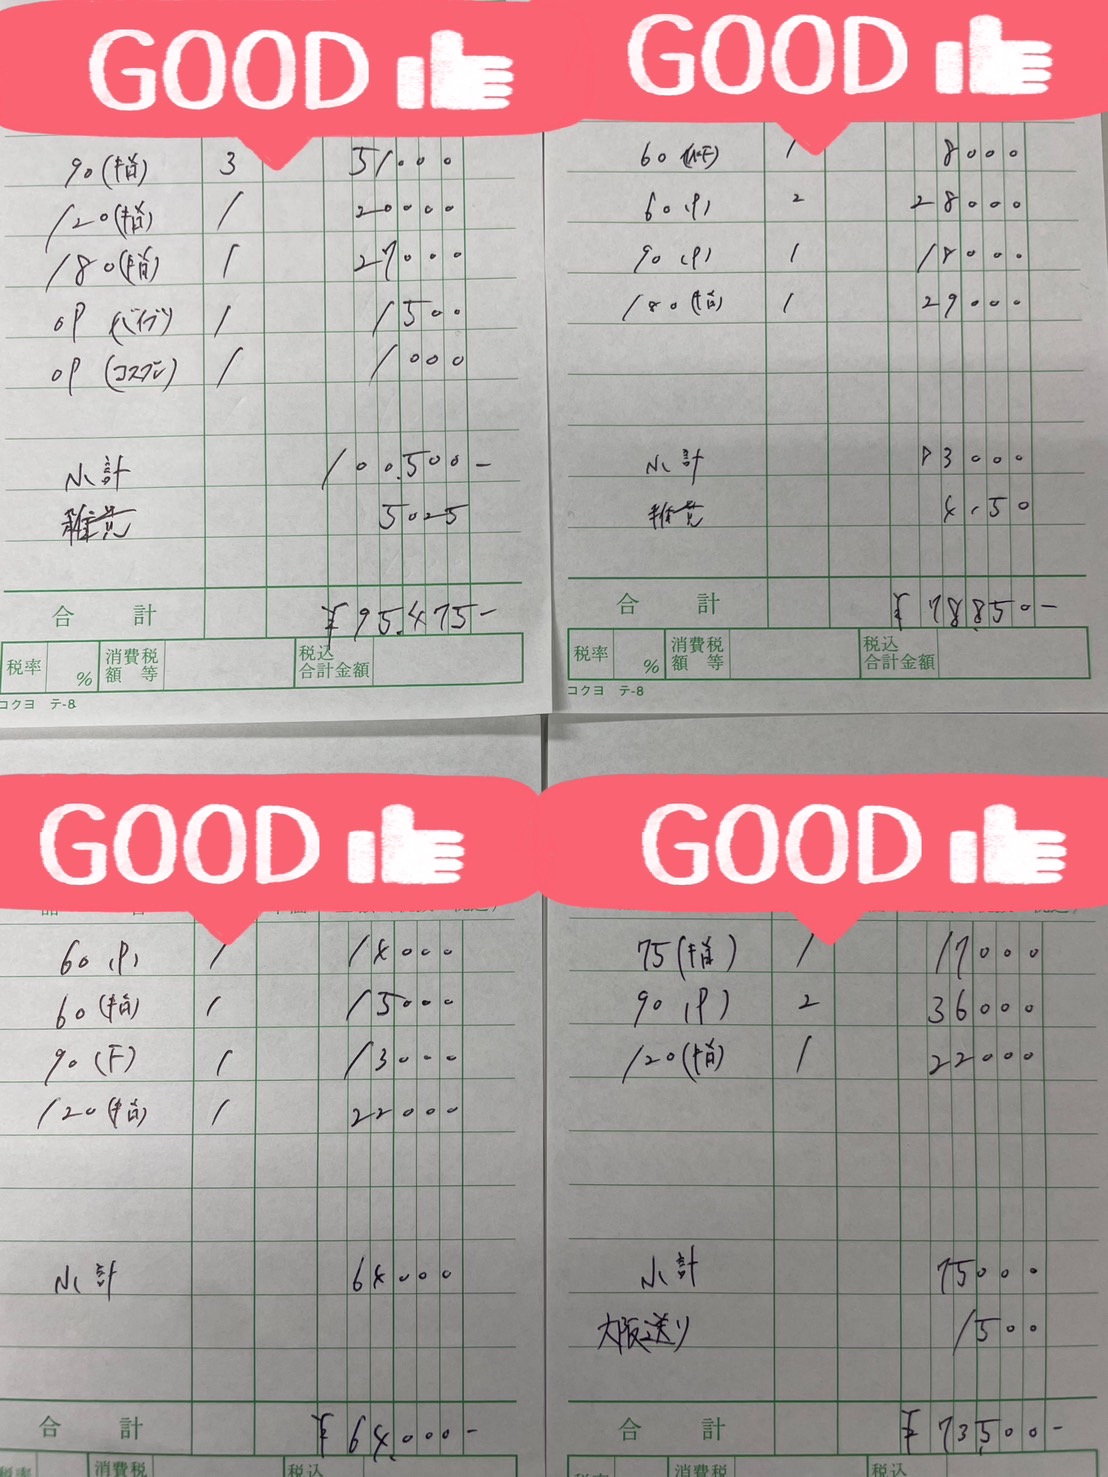 GOOD
90(指) 3 51000
120(指) 1 20000
180(指) 1 27000
OP (バイブ) 1 1500
OP (コスプレ) 1 1000
小計 100.500-
雑費 5025
合 計 ¥95.475-
税率 % 消費税額等 税込合計金額
コクヨ テ-8
GOOD
60 1 8000
60(P) 2 28000
90(P) 1 18000
180(指) 1 29000
小計 83000
雑費 4150
合 計 ¥78850-
税率 % 消費税額等 税込合計金額
コクヨ テ-8
GOOD
60(P) 1 14000
60(指) 1 15000
90(F) 1 13000
120(指) 1 22000
小計 64000
合 計 ¥64.000-
消費税 税込
GOOD
75(指) 1 17000
90(P) 2 36000
120(指) 1 22000
小計 75000
大阪送り 1500
合 計 ¥73500-
消費税 税込